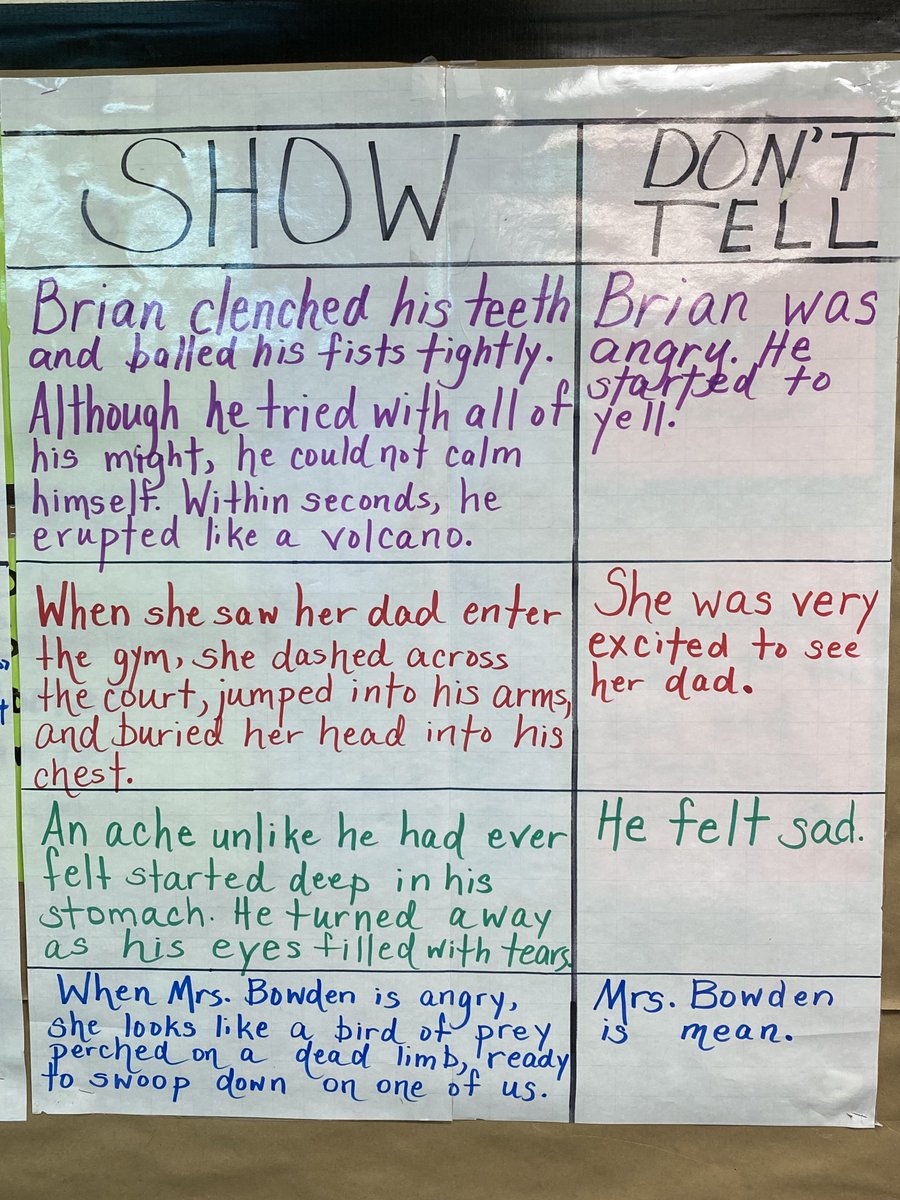 SHOW
DON'T
TELL
Brian clenched his teeth
and balled his fists tightly.
Although he tried with all of
his might, he could not calm
himself. Within seconds, he
erupted like a volcano.
Brian was
angry. He
started to
yell.
When she saw her dad enter
the gym, she dashed across
the court, jumped into his arms,
and buried her head into his
chest.
She was very
excited to see
her dad.
An ache unlike he had ever
felt started deep in his
stomach. He turned away
as his eyes filled with tears.
He felt sad.
When Mrs. Bowden is angry,
she looks like a bird of prey
perched on a dead limb, ready
to swoop down on one of us.
Mrs. Bowden
is mean.